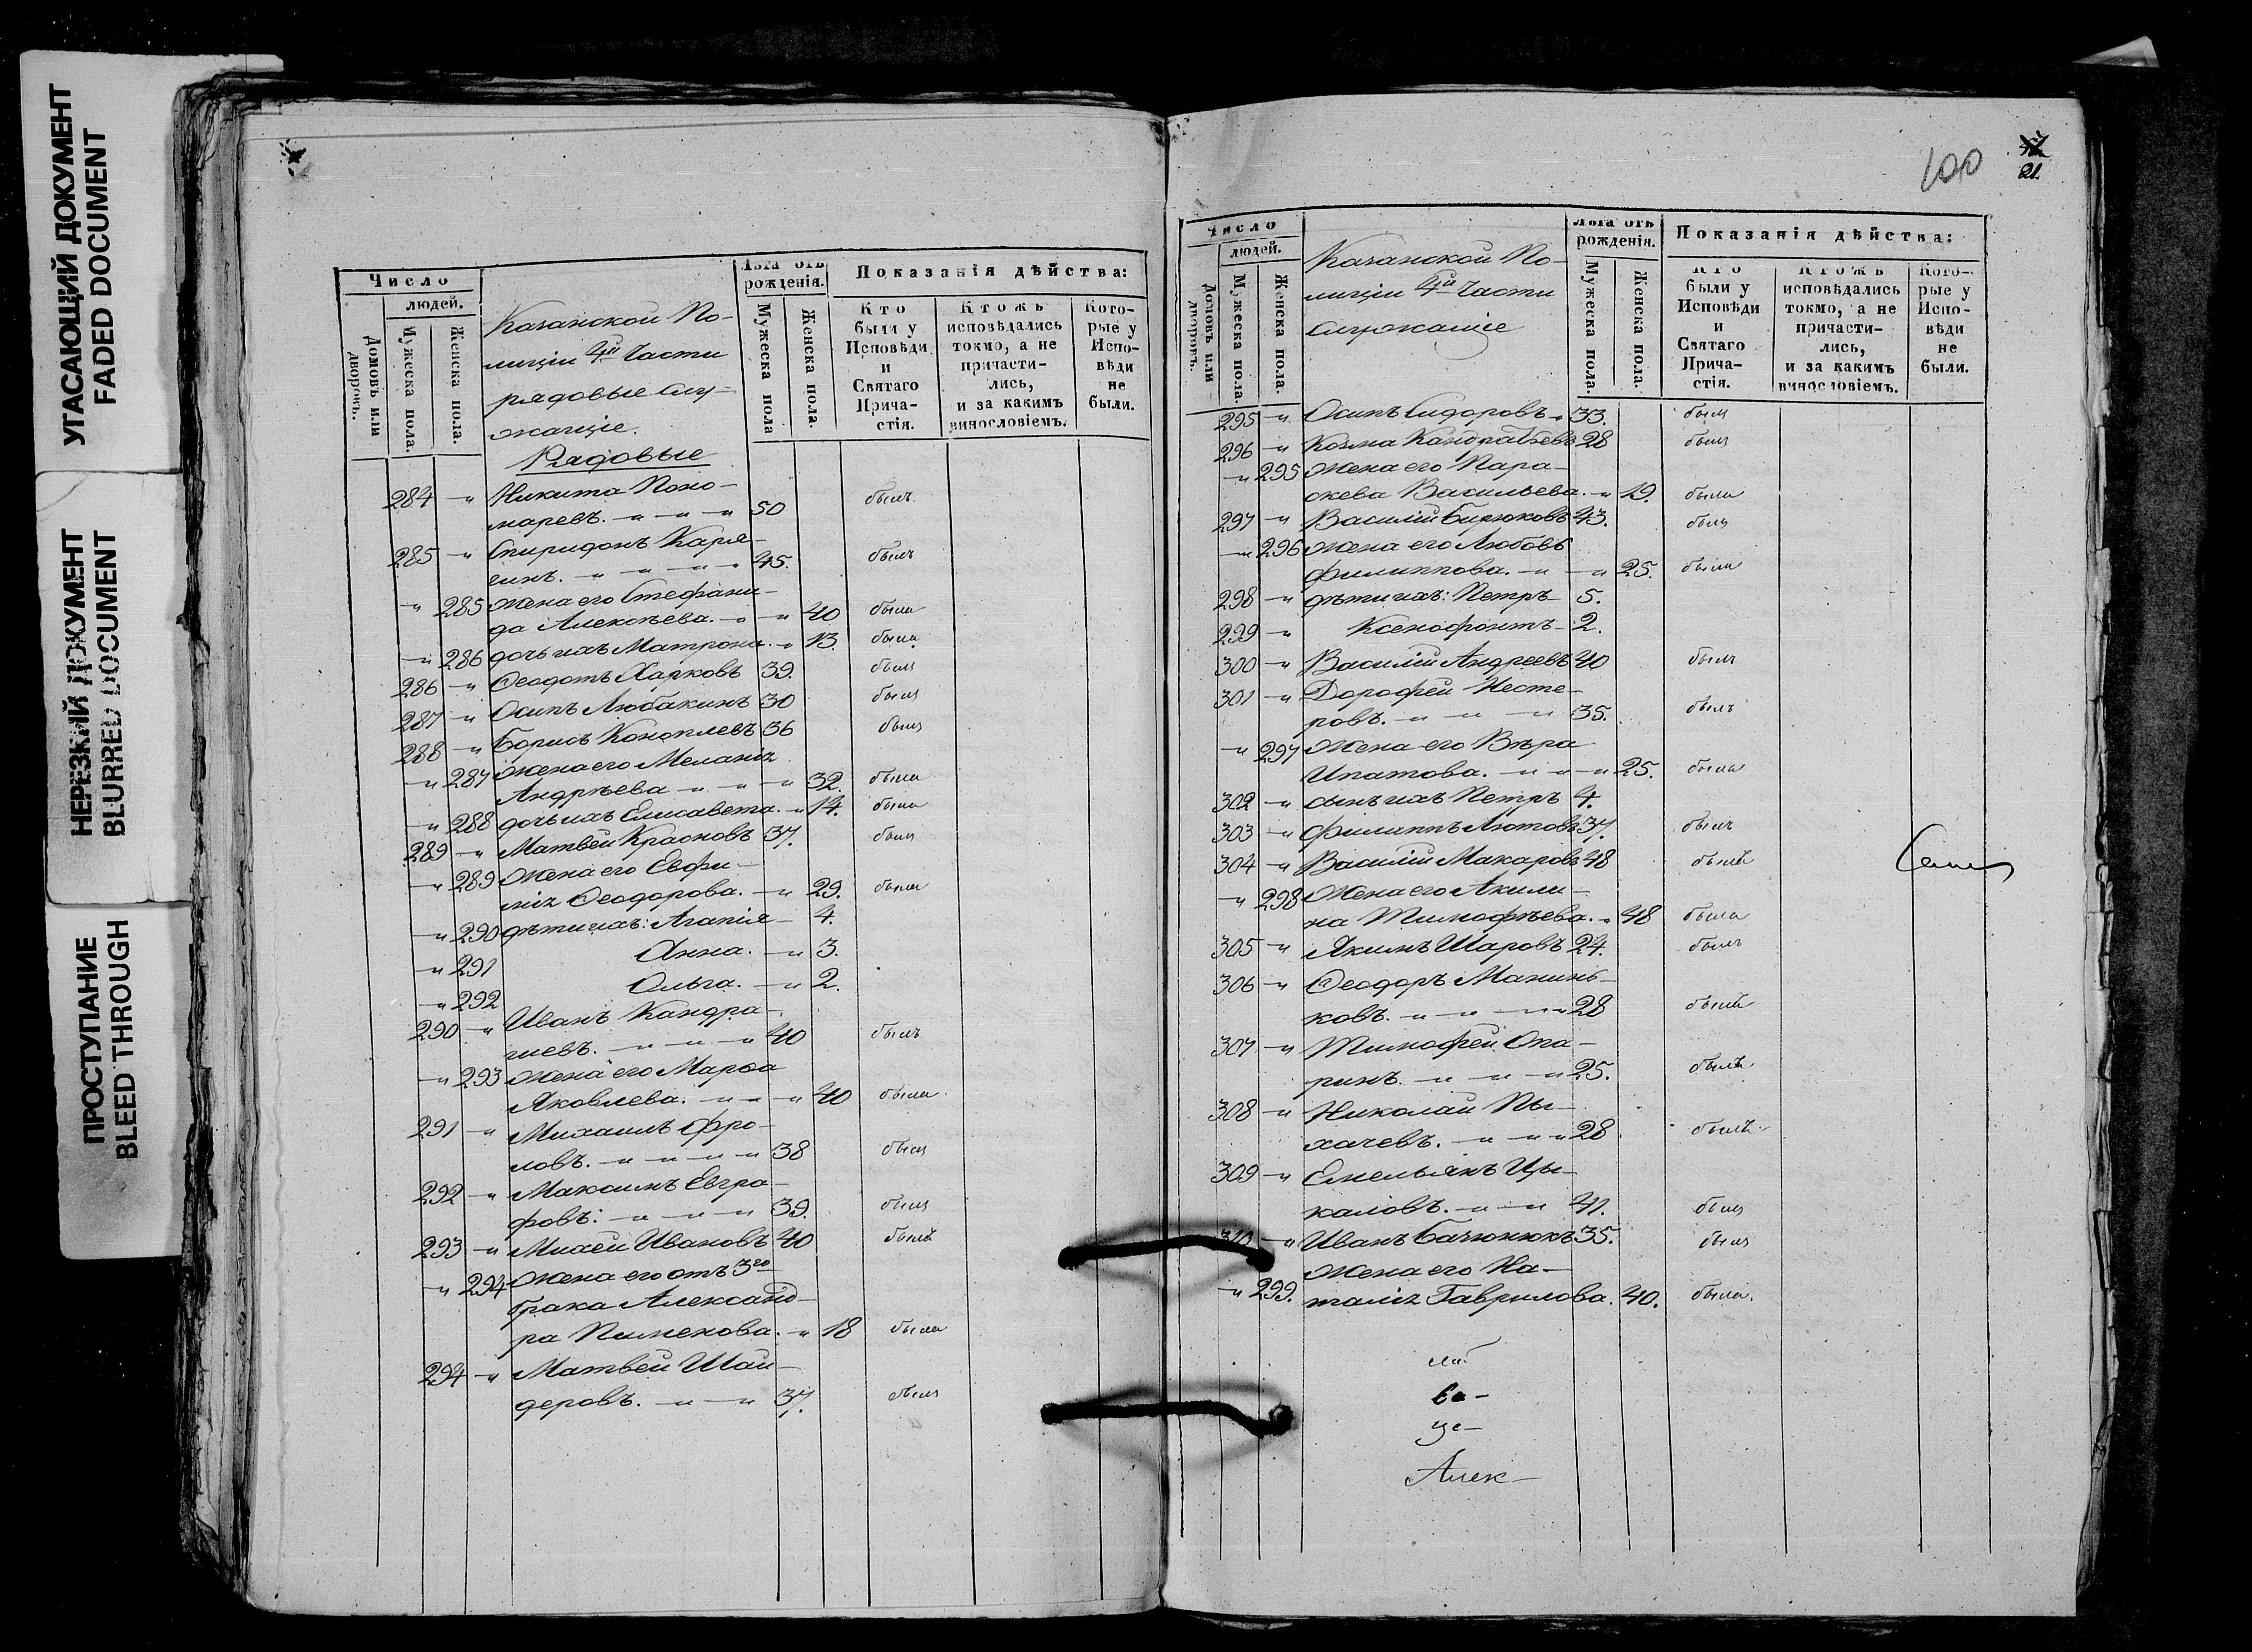 УГАСАЮЩИЙ ДОКУМЕНТ
FADED DOCUMENT
НЕРЕЗКИЙ ДОКУМЕНТ
BLURRED DOCUMENT
ПРОСТУПАНИЕ
BLEED THROUGH
Число
людей.
Домовъ или дворовъ.
Мужеска пола.
Женска пола.
Казанской По-
лиціи 4й Части
рядовые слу-
жащіе.
Лѣта отъ рожденія.
Мужеска пола
Женска пола.
Показанія дѣйства:
Кто были у Исповѣди и Святаго Прича-стія.
Ктожъ исповѣдались токмо, а не причасти-лись, и за какимъ винословіемъ.
Кото-рые у Испо-вѣди не были.
Рядовые
284 -"- Никита Поно-
маревъ. -"-"-"- 50 былъ
285 -"- Спиридонъ Каря-
гинъ. -"-"-"- 45. былъ
-"- 285 жена его Стефани-
да Алексѣева. -"- 40 была
-"- 286 дочь ихъ Матрона. -"- 13. была
286 -"- Ѳеодотъ Харковъ 39. былъ
287 -"- Осипъ Любакинъ 30 былъ
288 -"- Борисъ Коноплевъ 36 былъ
-"- 287 жена его Меланія
Андрѣева -"-"-"- 32. была
-"- 288 дочь ихъ Елисавета. -"- 14. была
289 -"- Матвѣй Красновъ 37. былъ
-"- 289 жена его Евфи-
мія Ѳеодорова. -"- 29. была
-"- 290 дѣти ихъ: Агапія- 4.
-"- 291 Анна. -"- 3.
-"- 292 Ольга. -"- 2.
290 -"- Иванъ Кандра-
шевъ. -"-"-"- 40 былъ
-"- 293 жена его Марѳа
Яковлева. -"-"-"- 40 была
291 -"- Михаилъ Фро-
ловъ. -"-"-"- 38 былъ
292 -"- Максимъ Евгра-
фовъ: -"-"-"- 39. былъ
293 -"- Михей Ивановъ 40 былъ
-"- 294 жена его отъ 3го
брака Александ-
ра Пименова. -"- 18 была
294 -"- Матвѣй Шай-
деровъ. -"-"- 37. былъ
100
21.
Число
людей.
Домовъ или дворовъ.
Мужеска пола.
Женска пола.
Казанской По-
лиціи 4й Части
служащіе
Лѣта отъ рожденія.
Мужеска пола.
Женска пола.
Показанія дѣйства:
Кто были у Исповѣди и Святаго Прича-стія.
Ктожъ исповѣдались токмо, а не причасти-лись, и за какимъ винословіемъ.
Кото-рые у Испо-вѣди не были.
295 -"- Осипъ Сидоровъ - 33. былъ
296 -"- Козма Кандратьевъ 28 былъ
-"- 295 жена его Пара-
скева Васильева. -"- 19. была
297 -"- Василій Бирюковъ 43. былъ
-"- 296 жена его Любовь
Филиппова. -"-"- 25. была
298 -"- дѣти ихъ: Петръ- 5.
299 -"- Ксенофонтъ- 2.
300 -"- Василій Андреевъ 40 былъ
301 -"- Дорофей Несте-
ровъ. -"-"-"- 35. былъ
-"- 297 жена его Вѣра
Ипатова. -"-"-"- 25. была
302 -"- сынъ ихъ Петръ 4.
303 -"- Филиппъ Лютовъ 37. былъ
304 -"- Василій Макаровъ 48 былъ
-"- 298 жена его Акили-
на Тимофѣева. -"- 48 была
305 -"- Якимъ Шаровъ 24. былъ
306 -"- Ѳеодоръ Манинь-
ковъ. -"-"-"- 28 былъ
307 -"- Тимофей Опа-
ринъ. -"-"-"- 25. былъ
308 -"- Николай Пы-
хачевъ. -"-"-"- 28 былъ
309 -"- Емельянъ Цы-
каловъ. -"-"- 41. былъ
310 -"- Иванъ Бачюнюкъ 35. былъ
жена его На-
-"- 299. талія Гаврилова. 40. была.
ва-
це-
Алек-